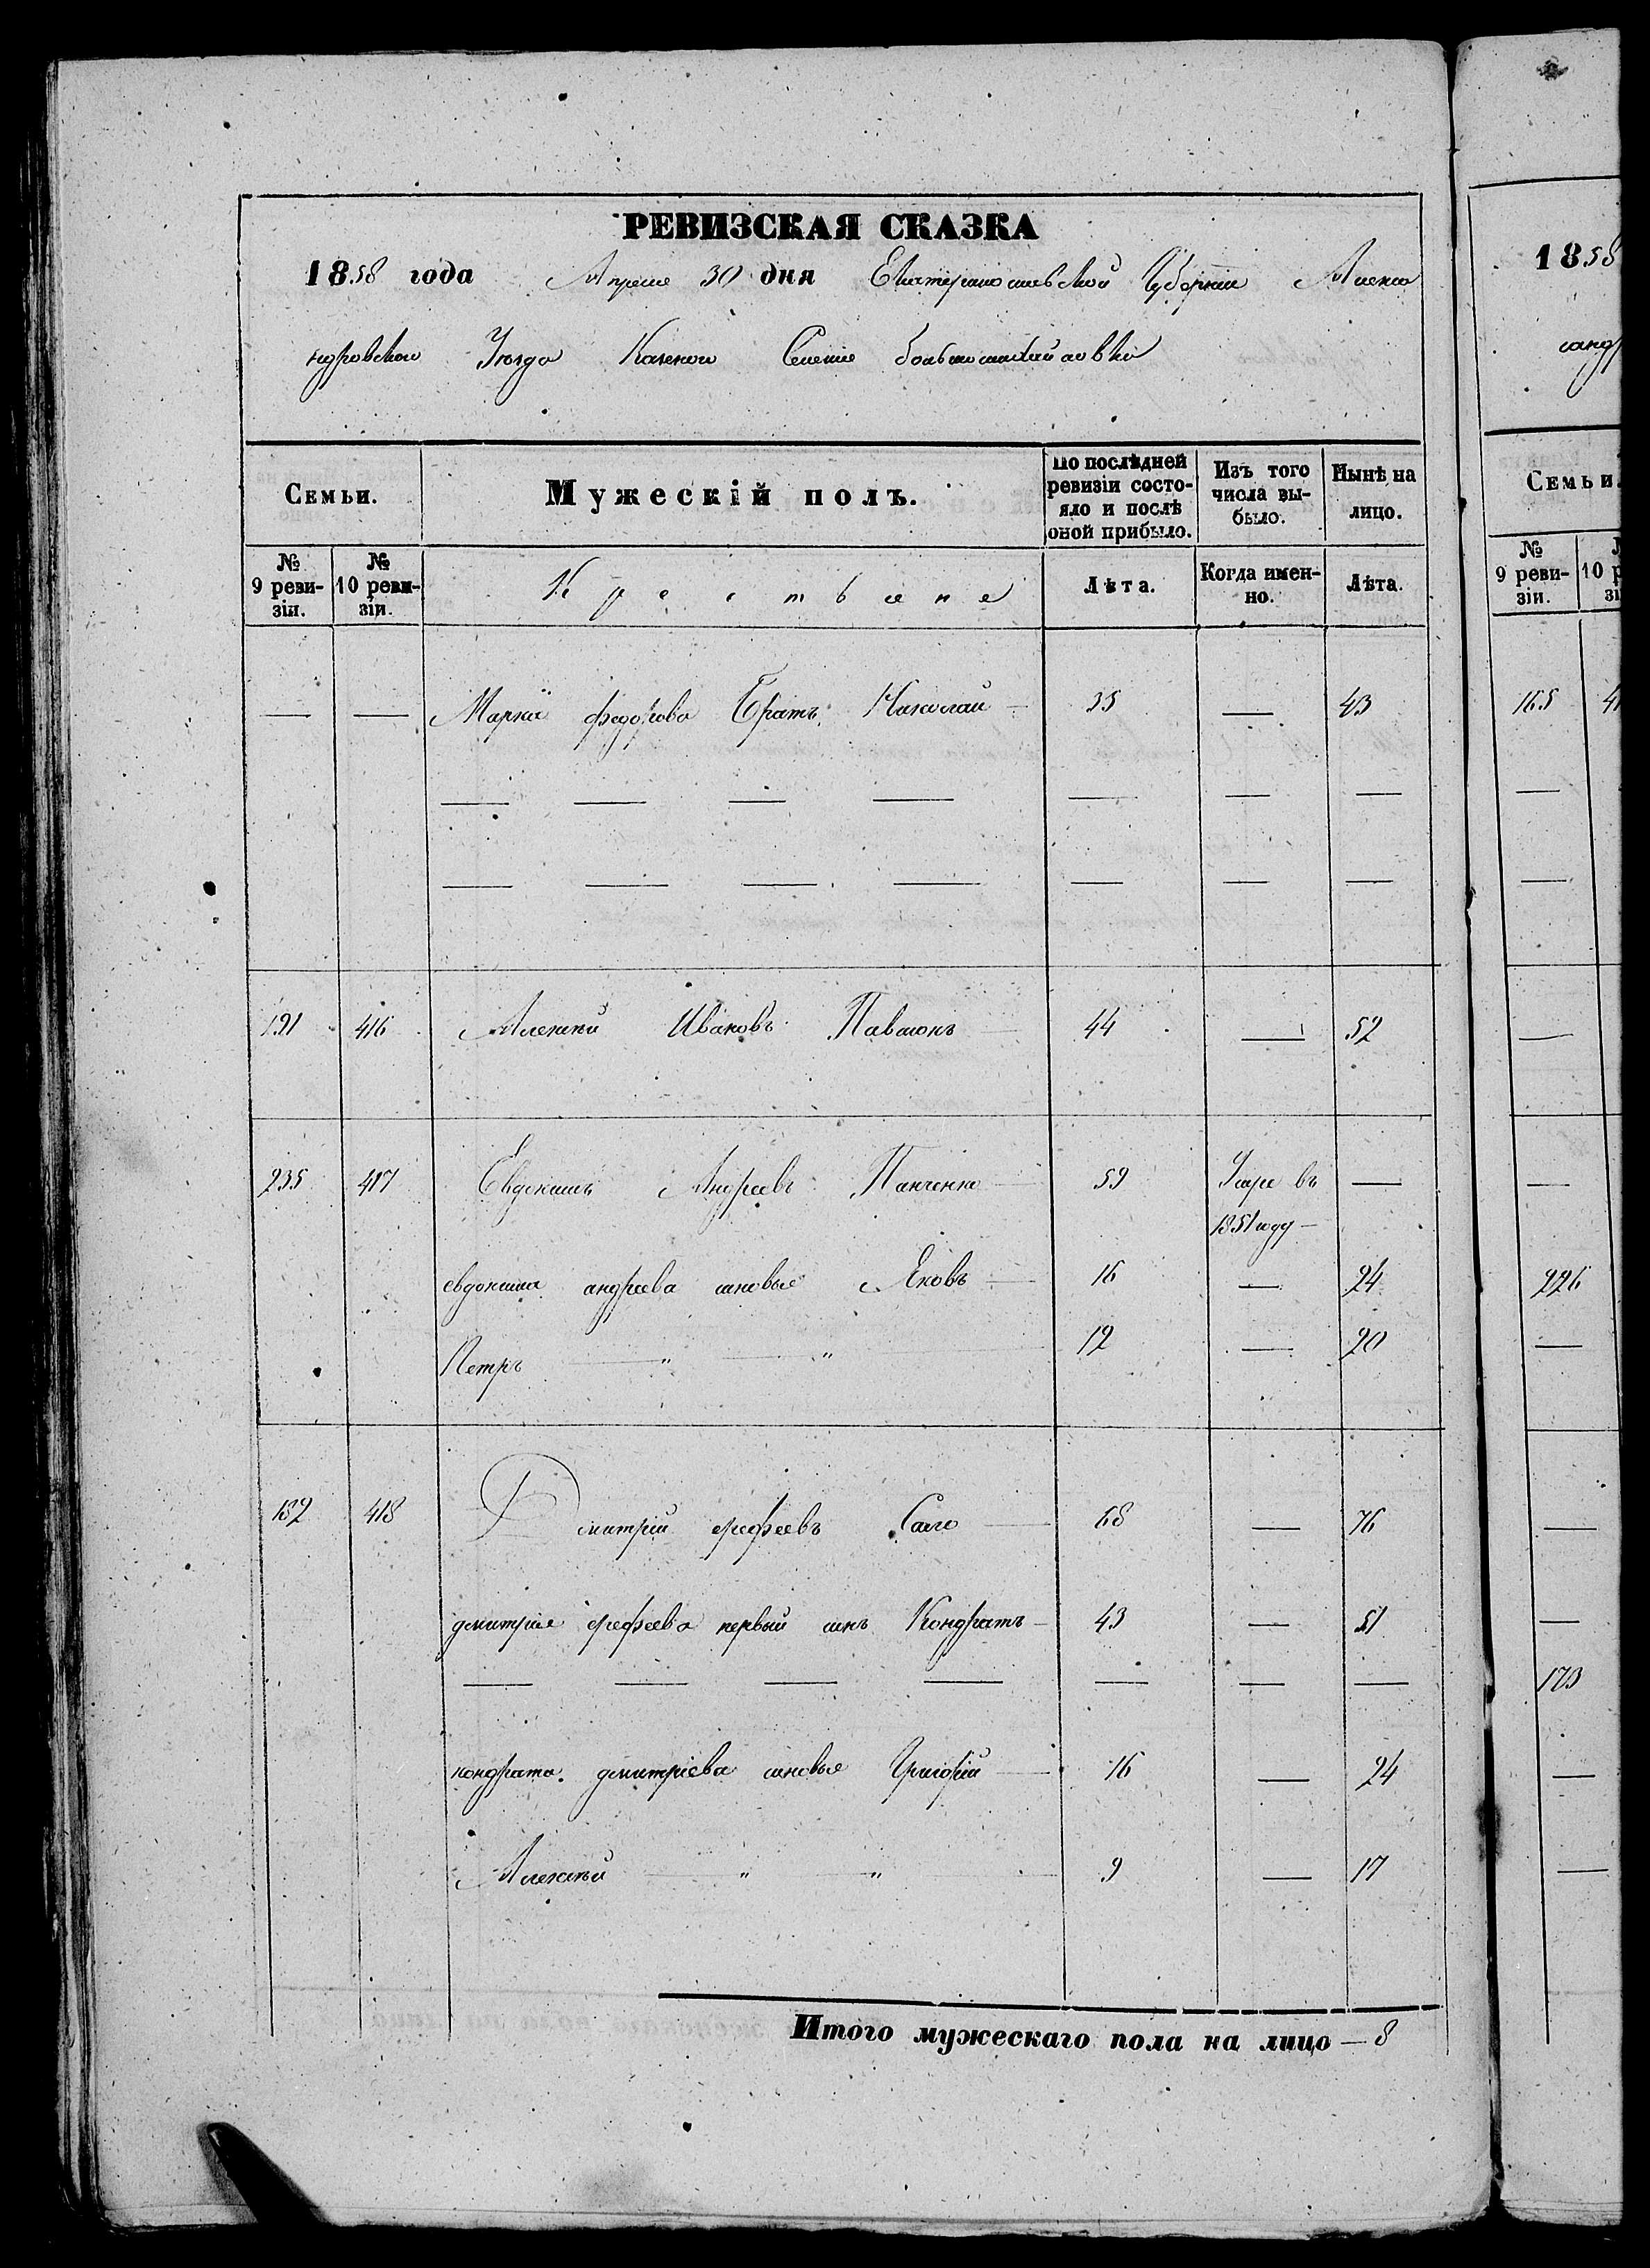 РЕВИЗСКАЯ СКАЗКА
1858 года Апреля 30 дня Екатеринославской Губернии Алекса
ндровскаго Уезда Казенного Селения большомихайловки
Семьи.
Мужескій полъ.
По послѣдней ревизіи состояло и послѣ оной прибыло.
Изъ того числа выбыло.
Нынѣ на лицо.
№ 9 ревизіи.
№ 10 ревизіи.
Крестьяне
Лѣта.
Когда именно.
Лѣта.
— — федорова Братъ Николай — 35 — 43
— — — — — — —
— — — — — — —
191 416 Алексей Ивановъ 44 — 52
235 417 Евдокимъ Андреевъ Панченко — 59 Умре въ —
1851 году —
евдокима андреева сыновье Яковъ — 16 — 24
Петръ — " — " — 12 — 20
182 418 Дмитрий ерофеевъ — 68 — 76
дмитрия ерофеева первый сынъ Кондратъ — 43 — 51
— — — — — — —
кондрата дмитріева сыновье Григорій — 16 — 24
Алексей — " — " — 9 — 17
Итого мужескаго пола на лицо — 8
1858
сандр
Семьи
№ 9 ревизіи.
165
—
—
—
—
226
—
—
—
173
—
—